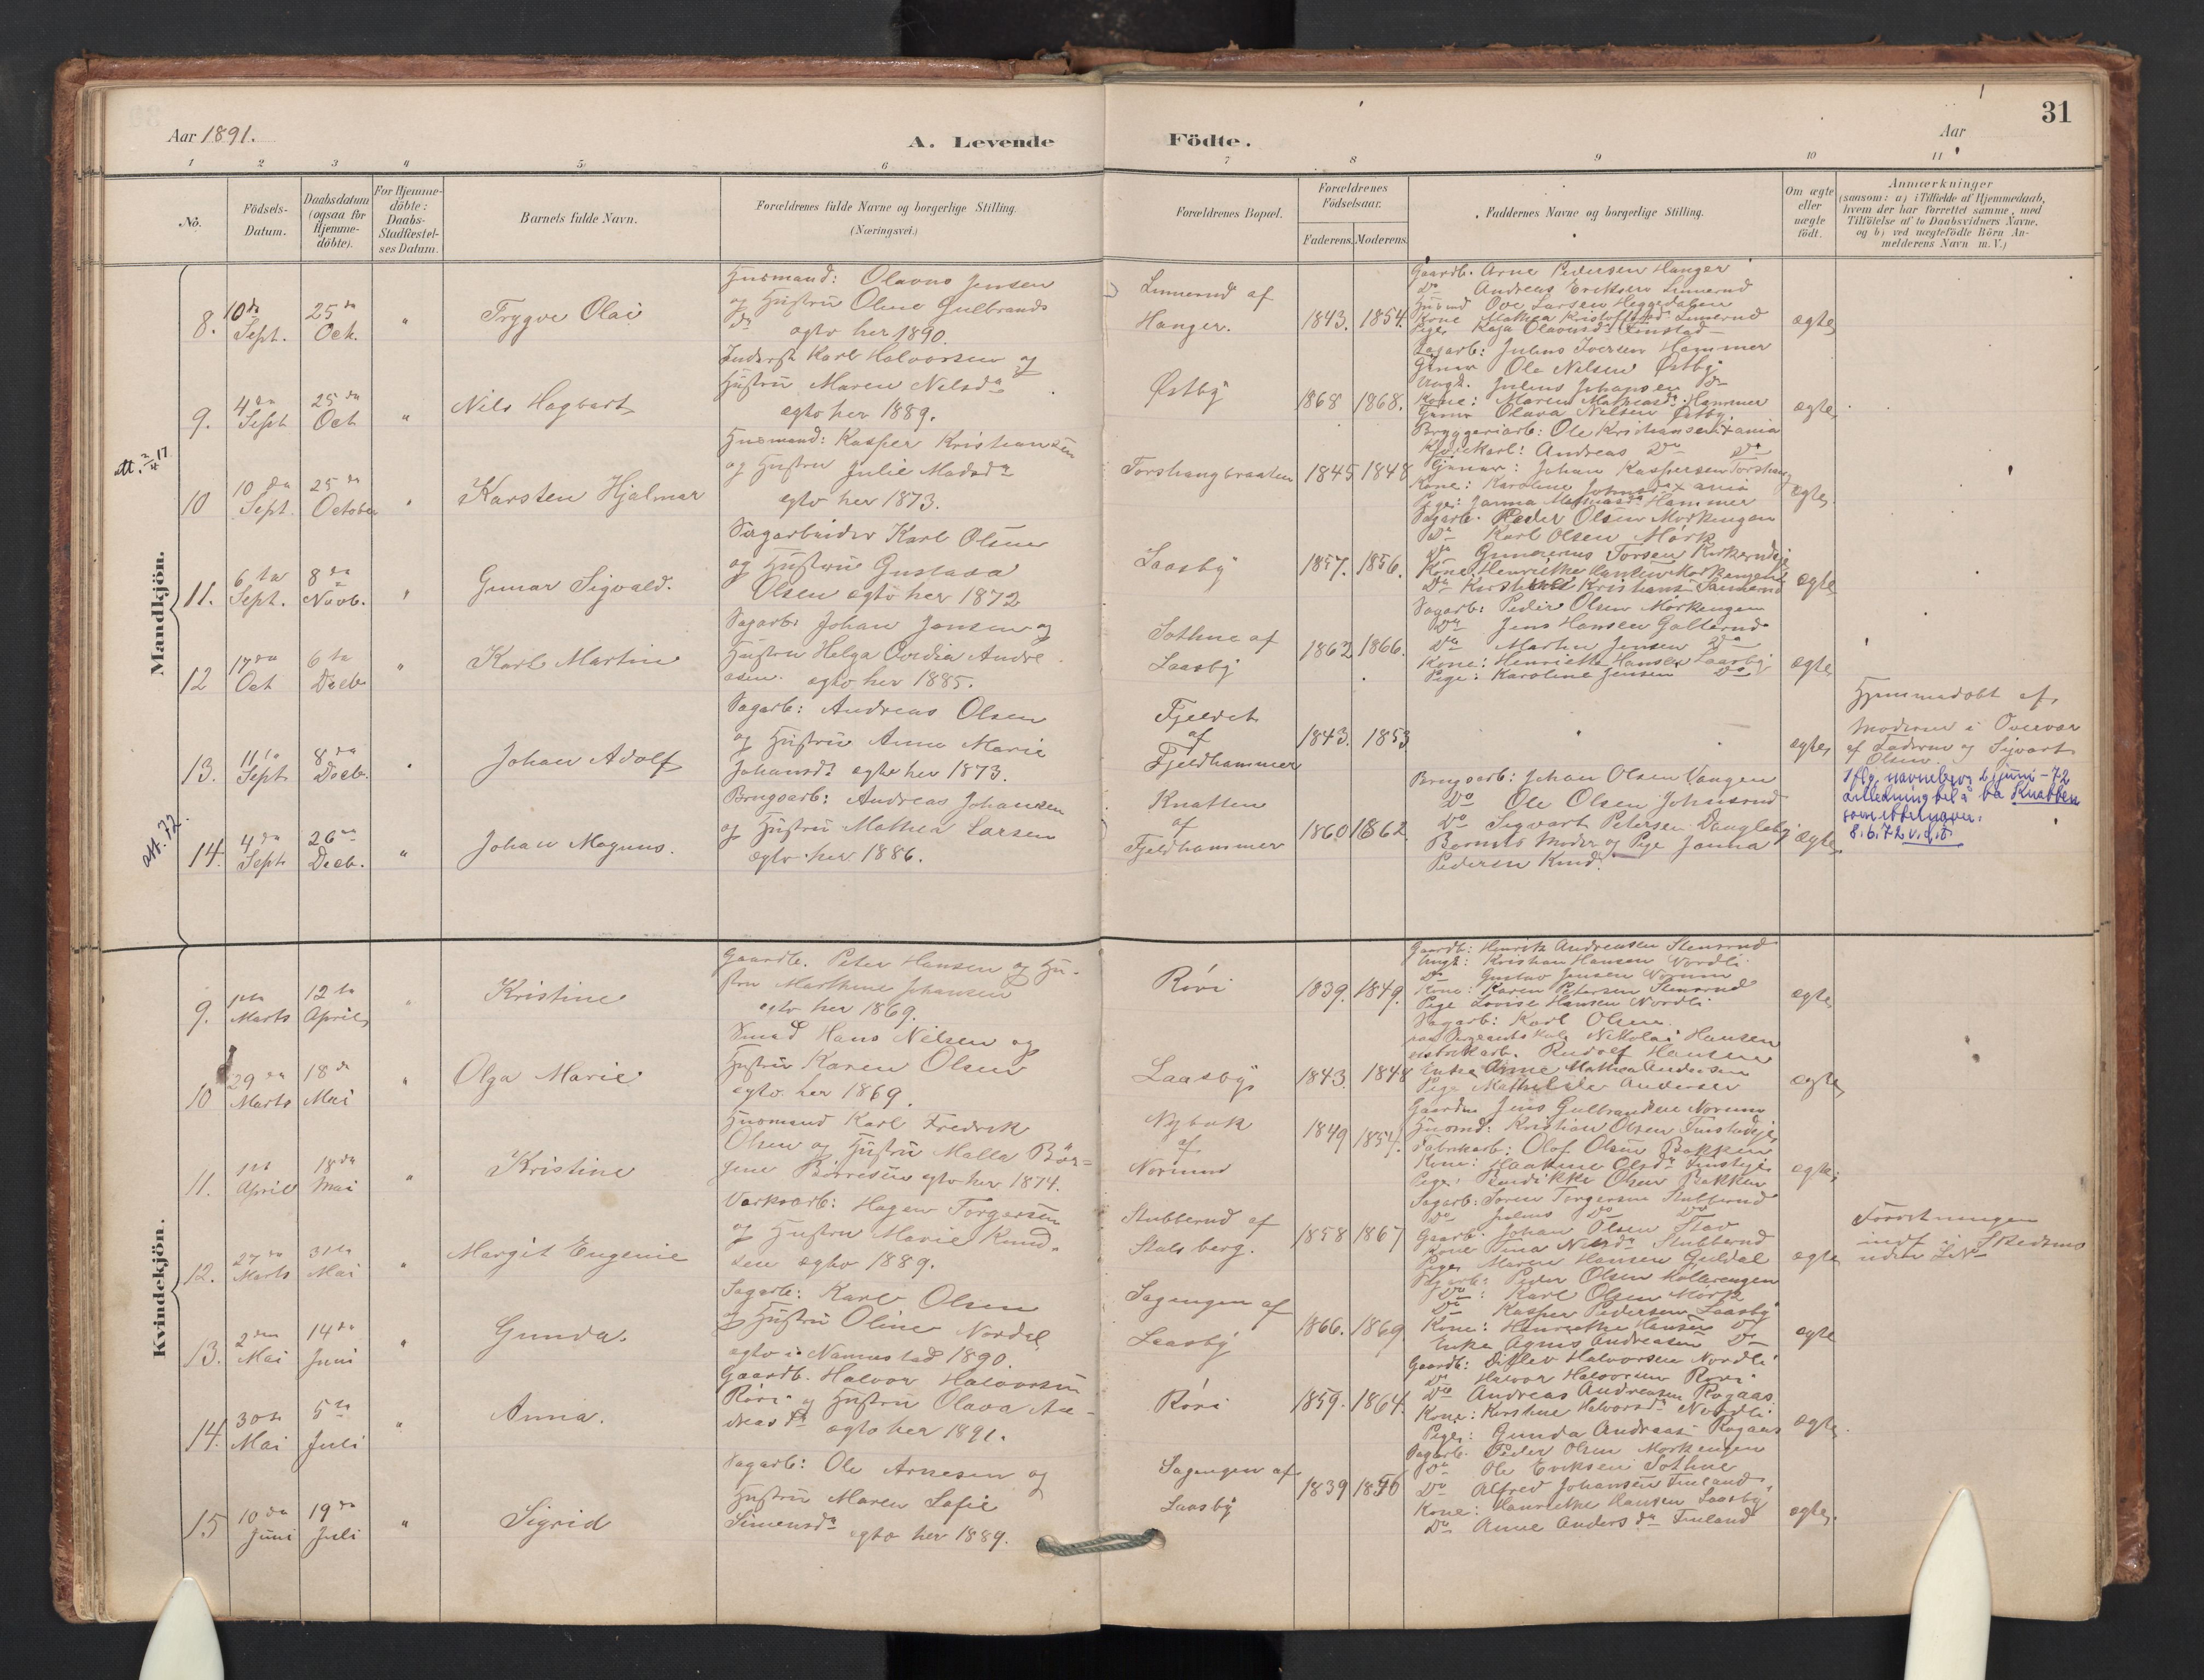 31
Aar 1891.
A. Levende Födte.
Aar
1 2 3 4 5 6 7 8 9 10 11
No.
Födsels-Datum.
Daabsdatum (ogsaa for Hjemme-döbte).
For Hjemme-döbte: Daabs-Stadfæstel-ses Datum.
Barnets fulde Navn.
Forældrenes fulde Navne og borgerlige Stilling. (Næringsvei.)
Forældrenes Bopæl.
Forældrenes Födselsaar.
Faderens. Moderens.
Faddernes Navne og borgerlige Stilling.
Om ægte eller uægte födt.
Anmærkninger
(saasom: a) i Tilfælde af Hjemmedaab,
hvem der har forrettet samme, med
Tilföielse af to Daabsvidners Navne.
og b) ved uægtefödte Börn An-
melderens Navn m. V.)
Mandkjön.
8. 10de Sept. 25de Oct. " Trygve Olai
Husmand: Olavus Jensen
og Hustru Oline Gulbrands
Dr ægtv her 1890.
Linnerud af
Hanger.
1843. 1854.
Gaardb. Arne Pedersen Hanger
Do Andreas Eriksen Linnerud
Husmd Ove Larsen Heggedalen
Kone Mathea Kristoffersd Linnerud
Pige Kaja Olavusdr Finstad
ægte
9. 4de Sept 25de Oct " Nils Hagbart
Inderst Karl Halvorsen og
Hustru Maren Nilsdr
ægtv her 1889.
Østby
1868 1868.
Sagarb: Julius Iversen Hammer
Ole Nilsen Østby
Ungk. Julius Johansen Do
Kone: Maren Mathiasdr Hammer
Olava Nilsen Østby.
ægte
att. 2/4 17
10 10de Sept. 25de October " Karsten Hjalmar
Husmand: Kasper Kristiansen
og Hustru Julie Madsdr
ægtv her 1873.
Torshaugbraaten
1845 1848
Bryggeriarb: Ole Kristiansen Xania
Andreas Do Do
Johan Kaspersen Torshaug
Kone: Karoline Johnsdr Xania
Pige: Janna Hammer
ægte
11. 6te Sept. 8de Novb. " Gunar Sigvald.
Sagarbeider Karl Olsen
og Hustru Gustava
Olsen ægtv her 1872
Laasby
1857. 1856.
Sagarb. Peder Olsen Morkengen
Do Karl Olsen Mørk
Do Torsen
Kone: Henriette Hansen Morkengen
ægte
12 17de Oct 6te Decb. " Karl Martin
Sagarb: Johan Jensen og
Hustru Helga Andre
asen. ægtv her 1885.
Sothue af
Laasby
1862 1866.
Sagarb: Peder Olsen Mørkengen
Do Jens Hansen Gallerud
Do Martin Jensen Do
Kone: Henriette Hansen Laasby
Pige: Karoline Jensen Do
ægte
13. 11te Sept 8de Decb. " Johan Adolf
Sagarb: Andreas Olsen
og Hustru Anne Marie
Johansdr ægtv her 1873.
Fjeldet
af
Fjeldhammer
1843. 1853
ægte
Hjemmedøbt af
Moderen i Overvær
af Faderen og Sigvart
Olsen.
att. 72.
14. 4de Sept 26de Decb. " Johan Magnus.
Brugsarb: Andreas Johansen
og Hustru Mathea Larsen
ægtv her 1886.
Knatten
af
Fjeldhammer
1860 1862.
Brugsarb: Johan Olsen Vangen
Do Ole Olsen Johnsrud
Do Sigvart Petersen Daugleby
Barnets Moder og Pige Janna
Pedersen Rud.
ægte
Iflg. navnebev. 6 juni -72
Knatten
som etternavn.
8.6.72
Kvindekjön.
9. 1ste Marts 12te April " Kristine
Gaardb. Peter Hansen og Hu-
stru Marthine Johansen
ægtv her 1869.
Røvi
1839. 1849.
Gaardb: Henrik Andreasen Stensrud
Ungk: Kristian Hansen Nordli
Do Gustav Jensen Norum
Kone: Karen Petersen Stensrud
Pige Lovise Hansen Nordli
ægte
10 29de Marts 18de Mai " Olga Marie
Smed Hans Nilsen og
Hustru Karen Olsen
ægtv her 1869.
Laasby
1843. 1848
Sagarb: Karl Olsen
Nikolai Hansen
Rudolf Hansen
Enke Anne Mathea Andersen
Pige Mathilde Andersen
ægte
11. 1ste April 18de Mai " Kristine
Husmand Karl Fredrik
Olsen og Hustru Malla Bör-
Børresen ægtv her 1874.
Nybak
af
Norum
1849 1854.
Gaardm Jens Gulbrandsen Norum
Husmd: Kristian Olsen
Fabrikarb: Olof Olsen Bakken
Kone: Olsdr
Pige: Olsen Bakken
ægte
12. 27de Marts 31te Mai " Margit Eugenie
Verksarb: Hagen Torgersen
og Hustru Marie Knud-
sen ægtv 1889.
Stubberud af
Stalsberg.
1858 1867
Sagarb: Søren Torgersen Stubberud
Do Julius Do Do
Gaarb. Johan Olsen Stav
Kone Tina Nilsdr Stubberud
Pige Maren Hansen Guldal
ægte
i Skedsmo
13. 2den Mai 14de Juni " Gunda.
Sagarb: Karl Olsen
og Hustru Oline Nordal
ægtv i Nannestad 1890.
Sagengen af
Laasby
1866. 1869
Sagarb: Peder Olsen Møllerengen
Do: Karl Olsen Mørk
Do Kasper Pedersen Laasby
Kone: Henriette Hansen Do
Enke Agnes Andreasen Do
ægte
14. 30te Mai 5te Juli " Anna.
Gaardb. Halvor Halvorsen
Røvi og Hustru Olava An-
dreasdr ægtv her 1891.
Røvi
1859. 1864.
Gaardb: Ditlev Halvorsen Nordli
Do Halvor Halvorsen Røvi
Do Andreas Andreasen Rogaas
Kone: Kirstine Halvorsdr Nordli
Pige: Gunda Andreasen Rogaas
ægte.
15 10de Juni 19de Juli " Sigrid
Sagarb: Ole Arnesen og
Hustru Maren Sofie
Simensdr ægtv her 1889.
Sagengen af
Laasby
1839 1856
Sagarb. Peder Olsen Morkengen
Do Ole Eriksen Sothue
Do Alfred Johansen Finland
Kone: Henriette Hansen Laasby
Do Anne Andersdr Finland
ægte.